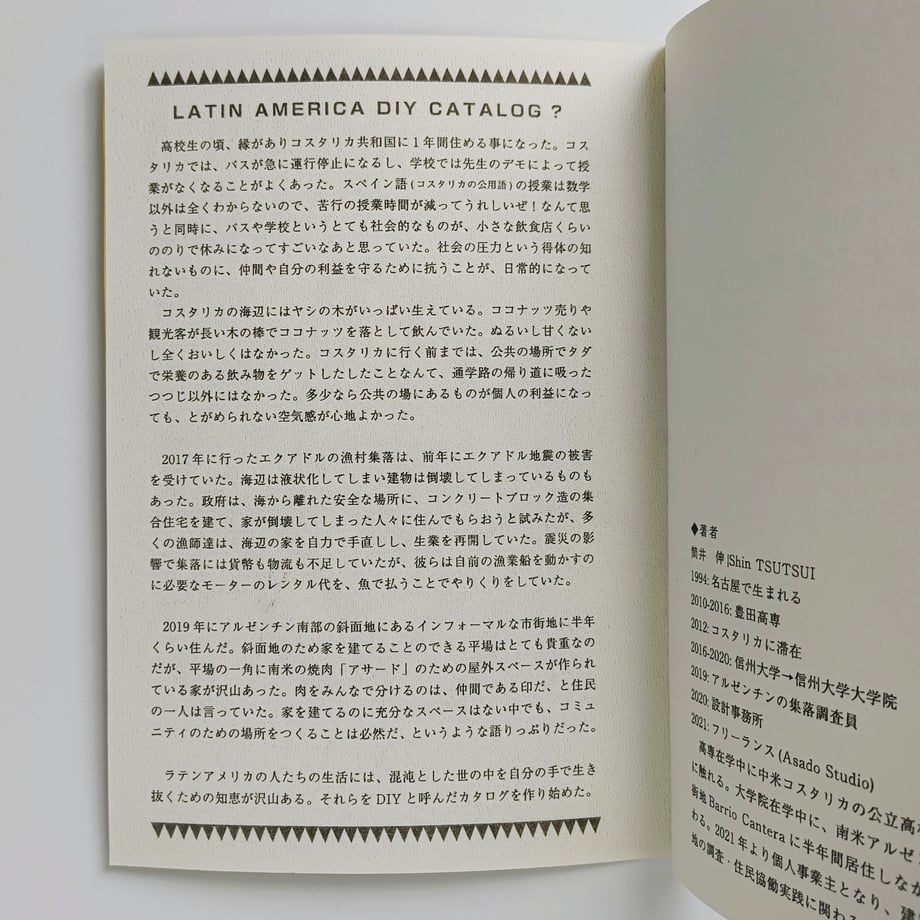 LATIN AMERICA DIY CATALOG ?
高校生の頃、縁がありコスタリカ共和国に1年間住める事になった。コス
タリカでは、バスが急に運行停止になるし、学校では先生のデモによって授
業がなくなることがよくあった。スペイン語(コスタリカの公用語)の授業は数学
以外は全くわからないので、苦行の授業時間が減ってうれしいぜ!なんて思
うと同時に、バスや学校というとても社会的なものが、小さな飲食店くらい
ののりで休みになってすごいなあと思っていた。社会の圧力という得体の知
れないものに、仲間や自分の利益を守るために抗うことが、日常的になって
いた。
コスタリカの海辺にはヤシの木がいっぱい生えている。ココナッツ売りや
観光客が長い木の棒でココナッツを落として飲んでいた。ぬるいし甘くない
し全くおいしくはなかった。コスタリカに行く前までは、公共の場所でタダ
で栄養のある飲み物をゲットしたしたことなんて、通学路の帰り道に吸った
つつじ以外にはなかった。多少なら公共の場にあるものが個人の利益になっ
ても、とがめられない空気感が心地よかった。
2017年に行ったエクアドルの漁村集落は、前年にエクアドル地震の被害
を受けていた。海辺は液状化してしまい建物は倒壊してしまっているものも
あった。政府は、海から離れた安全な場所に、コンクリートブロック造の集
合住宅を建て、家が倒壊してしまった人々に住んでもらおうと試みたが、多
くの漁師達は、海辺の家を自力で手直しし、生業を再開していた。震災の影
響で集落には貨幣も物流も不足していたが、彼らは自前の漁業船を動かすの
に必要なモーターのレンタル代を、魚で払うことでやりくりをしていた。
2019年にアルゼンチン南部の斜面地にあるインフォーマルな市街地に半年
くらい住んだ。斜面地のため家を建てることのできる平場はとても貴重なの
だが、平場の一角に南米の焼肉「アサード」のための屋外スペースが作られ
ている家が沢山あった。肉をみんなで分けるのは、仲間である印だ、と住民
の一人は言っていた。家を建てるのに充分なスペースはない中でも、コミュ
ニティのための場所をつくることは必然だ、というような語りっぷりだった。
ラテンアメリカの人たちの生活には、混沌とした世の中を自分の手で生き
抜くための知恵が沢山ある。それらをDIYと呼んだカタログを作り始めた。
◆著者
筒井 伸|Shin TSUTSUI
1994:名古屋で生まれる
2010-2016:豊田高専
2012:コスタリカに滞在
2016-2020:信州大学→信州大学大学院
2019:アルゼンチンの集落調査員
2020:設計事務所
2021:フリーランス(Asado Studio)
高専在学中に中米コスタリカの公立高
に触れる。大学院在学中に、南米アルゼ
街地Barrio Canteraに半年間居住しなが
わる。2021年より個人事業主となり、建
地の調査・住民協働実践に関わ